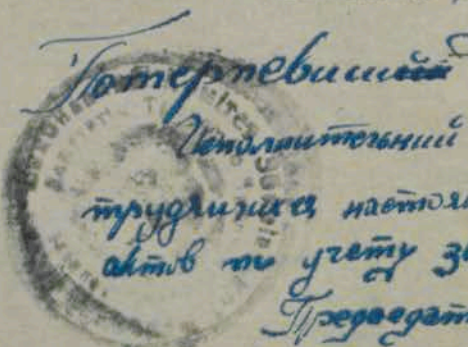 Потерпевший
Исполнительный
трудящихся настоя
актов по учету за
Председат